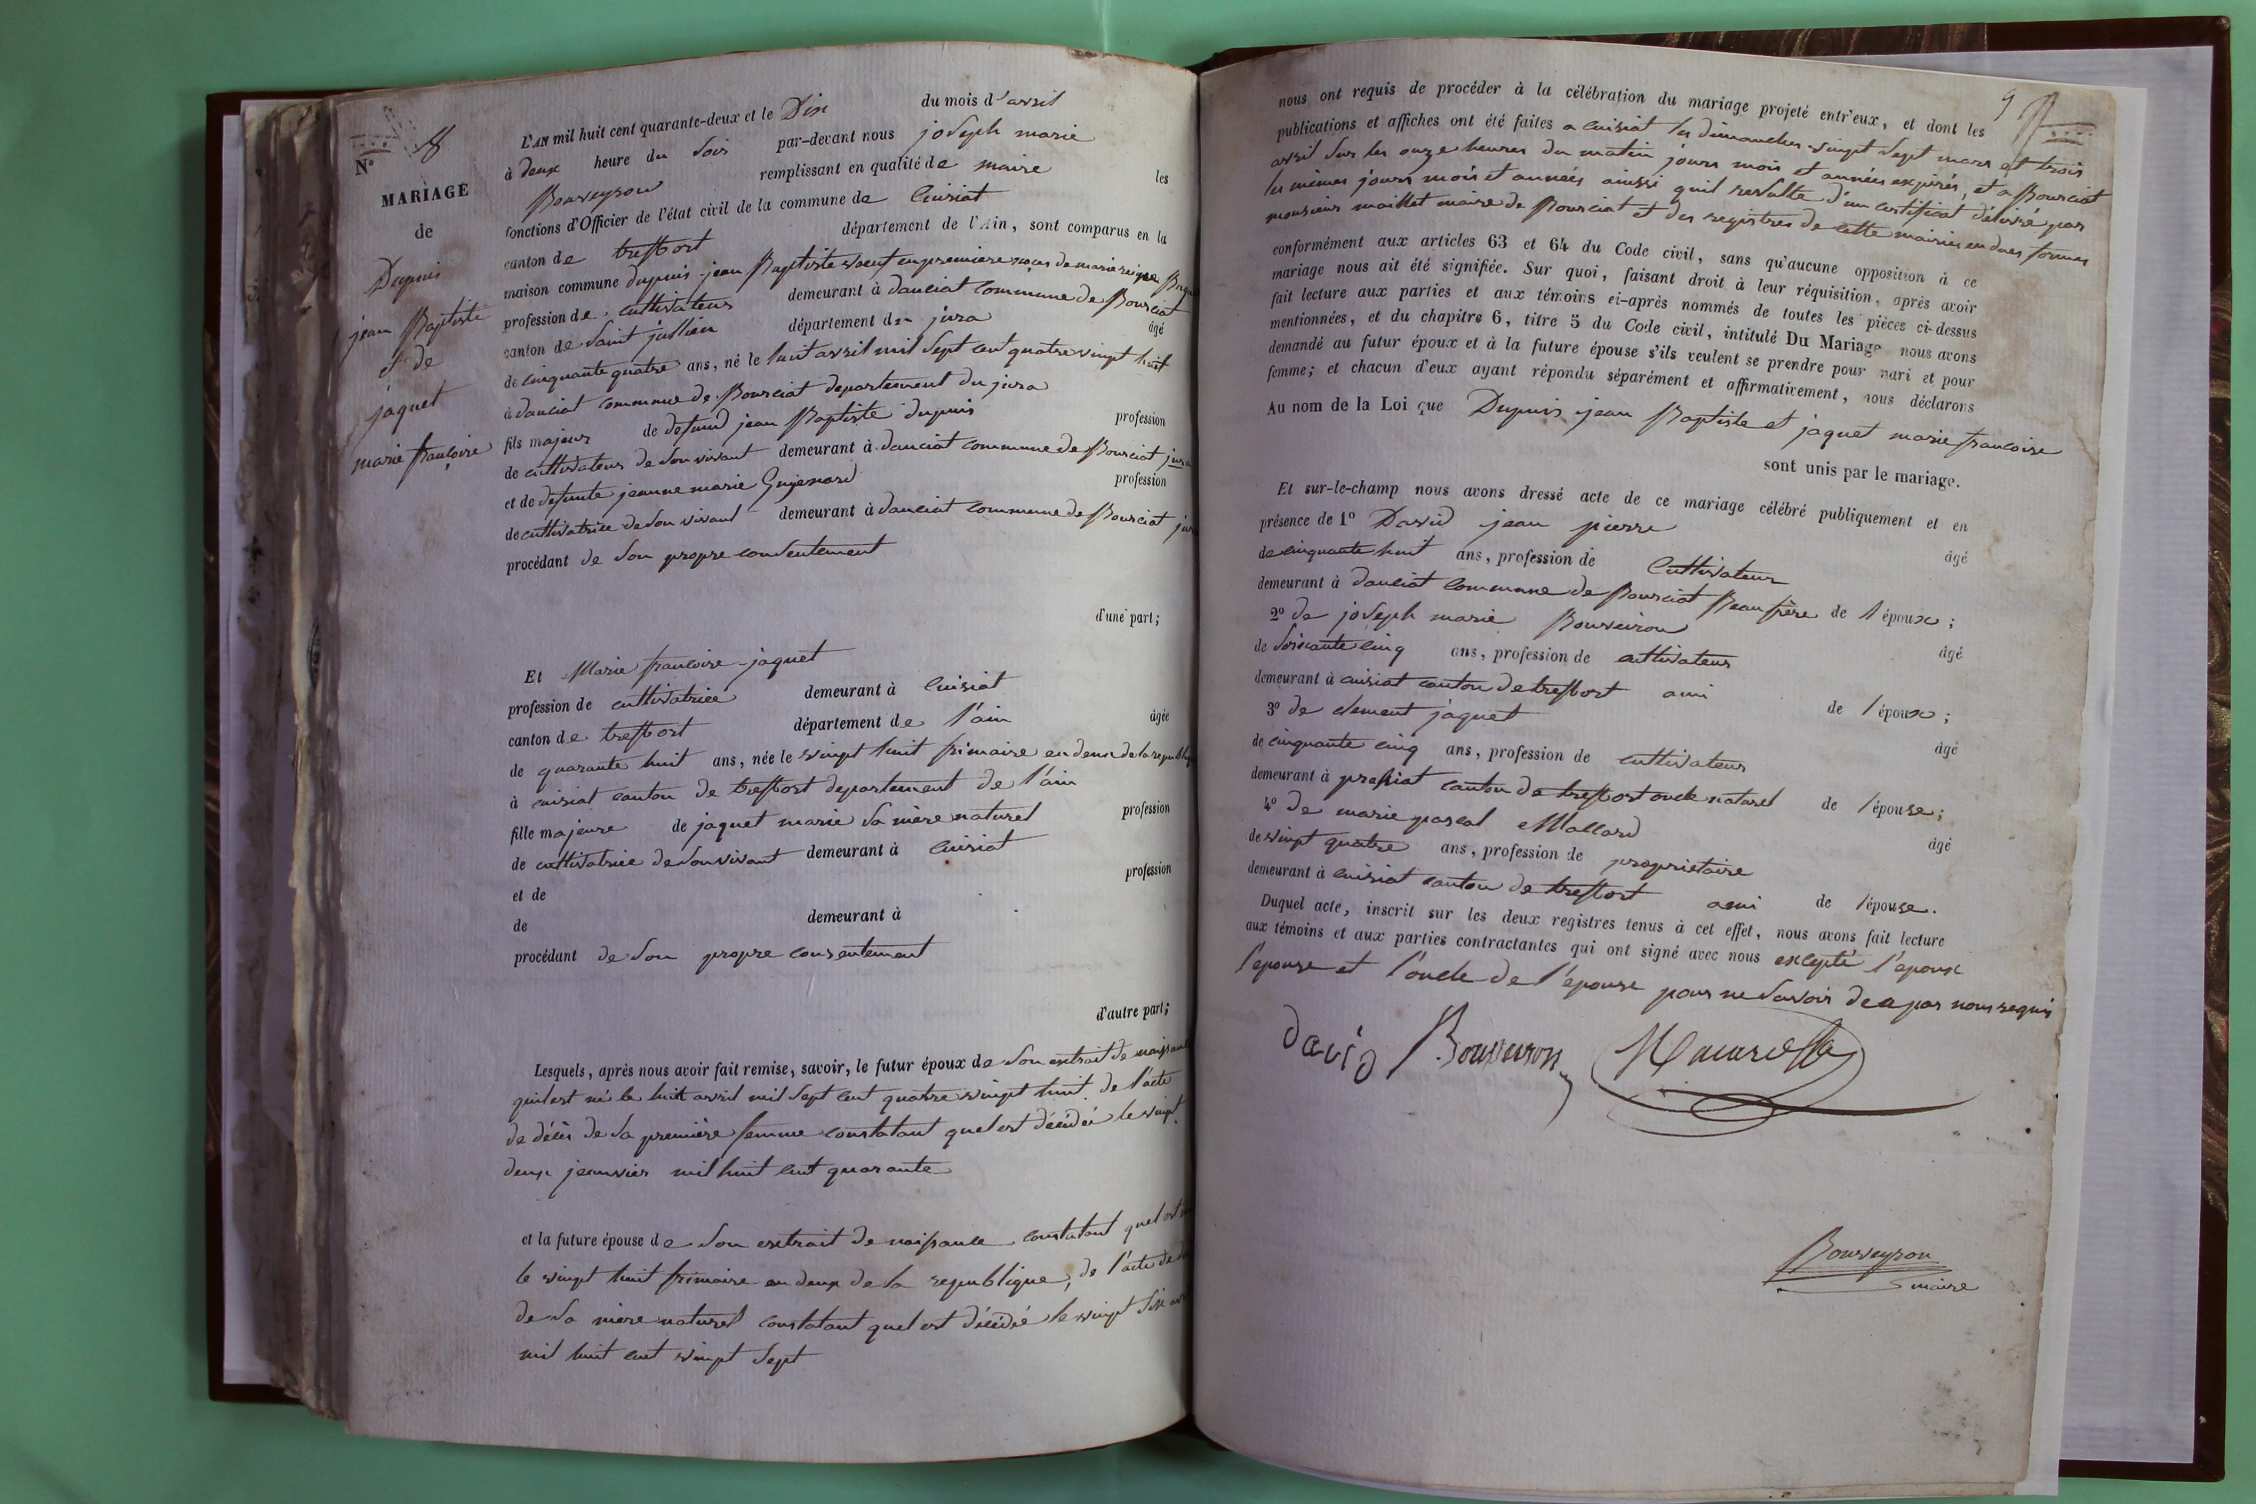 N° 8
MARIAGE
de
Dupuis
jean Baptiste
et de
jaquet
marie françoise
L'AN mil huit cent quarante-deux et le Dix du mois d'avril
à deux heure du soir par-devant nous joseph marie
Bouveyron remplissant en qualité de maire les
fonctions d'Officier de l'état civil de la commune de Cuisiat
canton de treffort département de l'Ain, sont comparus en la
maison commune dupuis jean Baptiste veuf en premiere noces de marie
profession de cultivateur demeurant à danciat commune de Bourciat
canton de saint jullien département du jura âgé
de cinquante quatre ans, né le huit avril mil sept cent quatre vingt huit
à danciat commune de Bourciat departement du jura
fils majeur de defund jean Baptiste dupuis profession
de cultivateur de son vivant demeurant à danciat commune de Bourciat jura
et de defunte jeanne marie profession
de cultivatrice de son vivant demeurant à danciat commune de Bourciat
procédant de son propre consentement
d'une part;
Et Marie francoise jaquet
profession de cultivatrice demeurant à Cuisiat
canton de treffort département de l'ain âgée
de quarante huit ans, née le vingt huit frimaire an deux de la
à cuisiat canton de treffort departement de l'ain
fille majeure de jaquet marie sa mère naturel profession
de cultivatrice de son vivant demeurant à Cuisiat
et de profession
de demeurant à
procédant de son propre consentement
d'autre part;
Lesquels, après nous avoir fait remise, savoir, le futur époux de son extrait de
quil est né le huit avril mil sept cent quatre vingt huit de l'acte
de décès de sa première femme constatant quel est décédée le vingt
deux jeanvier mil huit cent quarante
et la future épouse de son extrait de naissance constatant quel est
le vingt huit frimaire an deux de la republique, de l'acte de
de sa mère naturel constatant quel est décédée le vingt six
mil huit cent vingt sept
9
nous ont requis de procéder à la célébration du mariage projeté entr'eux, et dont les
publications et affiches ont été faites a cuisiat les dimanches vingt sept mars et trois
avril sur les onze heures du matin jours mois et années expirés, et a Bourciat
les mêmes jours mois et années ainssi quil resulte d'un certificat délivré par
monsieur maillet maire de Bourciat et des registres de cette mairie en dues formes
conformément aux articles 63 et 64 du Code civil, sans qu'aucune opposition à ce
mariage nous ait été signifiée. Sur quoi, faisant droit à leur réquisition, après avoir
fait lecture aux parties et aux témoins ci-après nommés de toutes les pièces ci-dessus
mentionnées, et du chapitre 6, titre 5 du Code civil, intitulé Du Mariage nous avons
demandé au futur époux et à la future épouse s'ils veulent se prendre pour mari et pour
femme; et chacun d'eux ayant répondu séparément et affirmativement, nous déclarons
Au nom de la Loi que Dupuis jean Baptiste et jaquet marie francoise
sont unis par le mariage.
Et sur-le-champ nous avons dressé acte de ce mariage célébré publiquement et en
présence de 1° David jean pierre âgé
de cinquante huit ans, profession de Cultivateur
demeurant à danciat commune de Bourciat Beau frère de l'époux;
2° de joseph marie Bouveiron âgé
de soixante cinq ans, profession de cultivateur
demeurant à cuisiat canton de treffort ami de l'époux;
3° de clement jaquet âgé
de cinquante cinq ans, profession de cultivateur
demeurant à pressiat canton de treffort oncle naturel de l'épouse;
4° de marie pascal Mallard âgé
de vingt quatre ans, profession de proprietaire
demeurant à cuisiat canton de treffort ami de l'épouse.
Duquel acte, inscrit sur les deux registres tenus à cet effet, nous avons fait lecture
aux témoins et aux parties contractantes qui ont signé avec nous excepté l'epoux
l'epouse et l'oncle de l'épouse pour ne savoir de a par nous requis
david Bouveiron
Bouveyron
maire